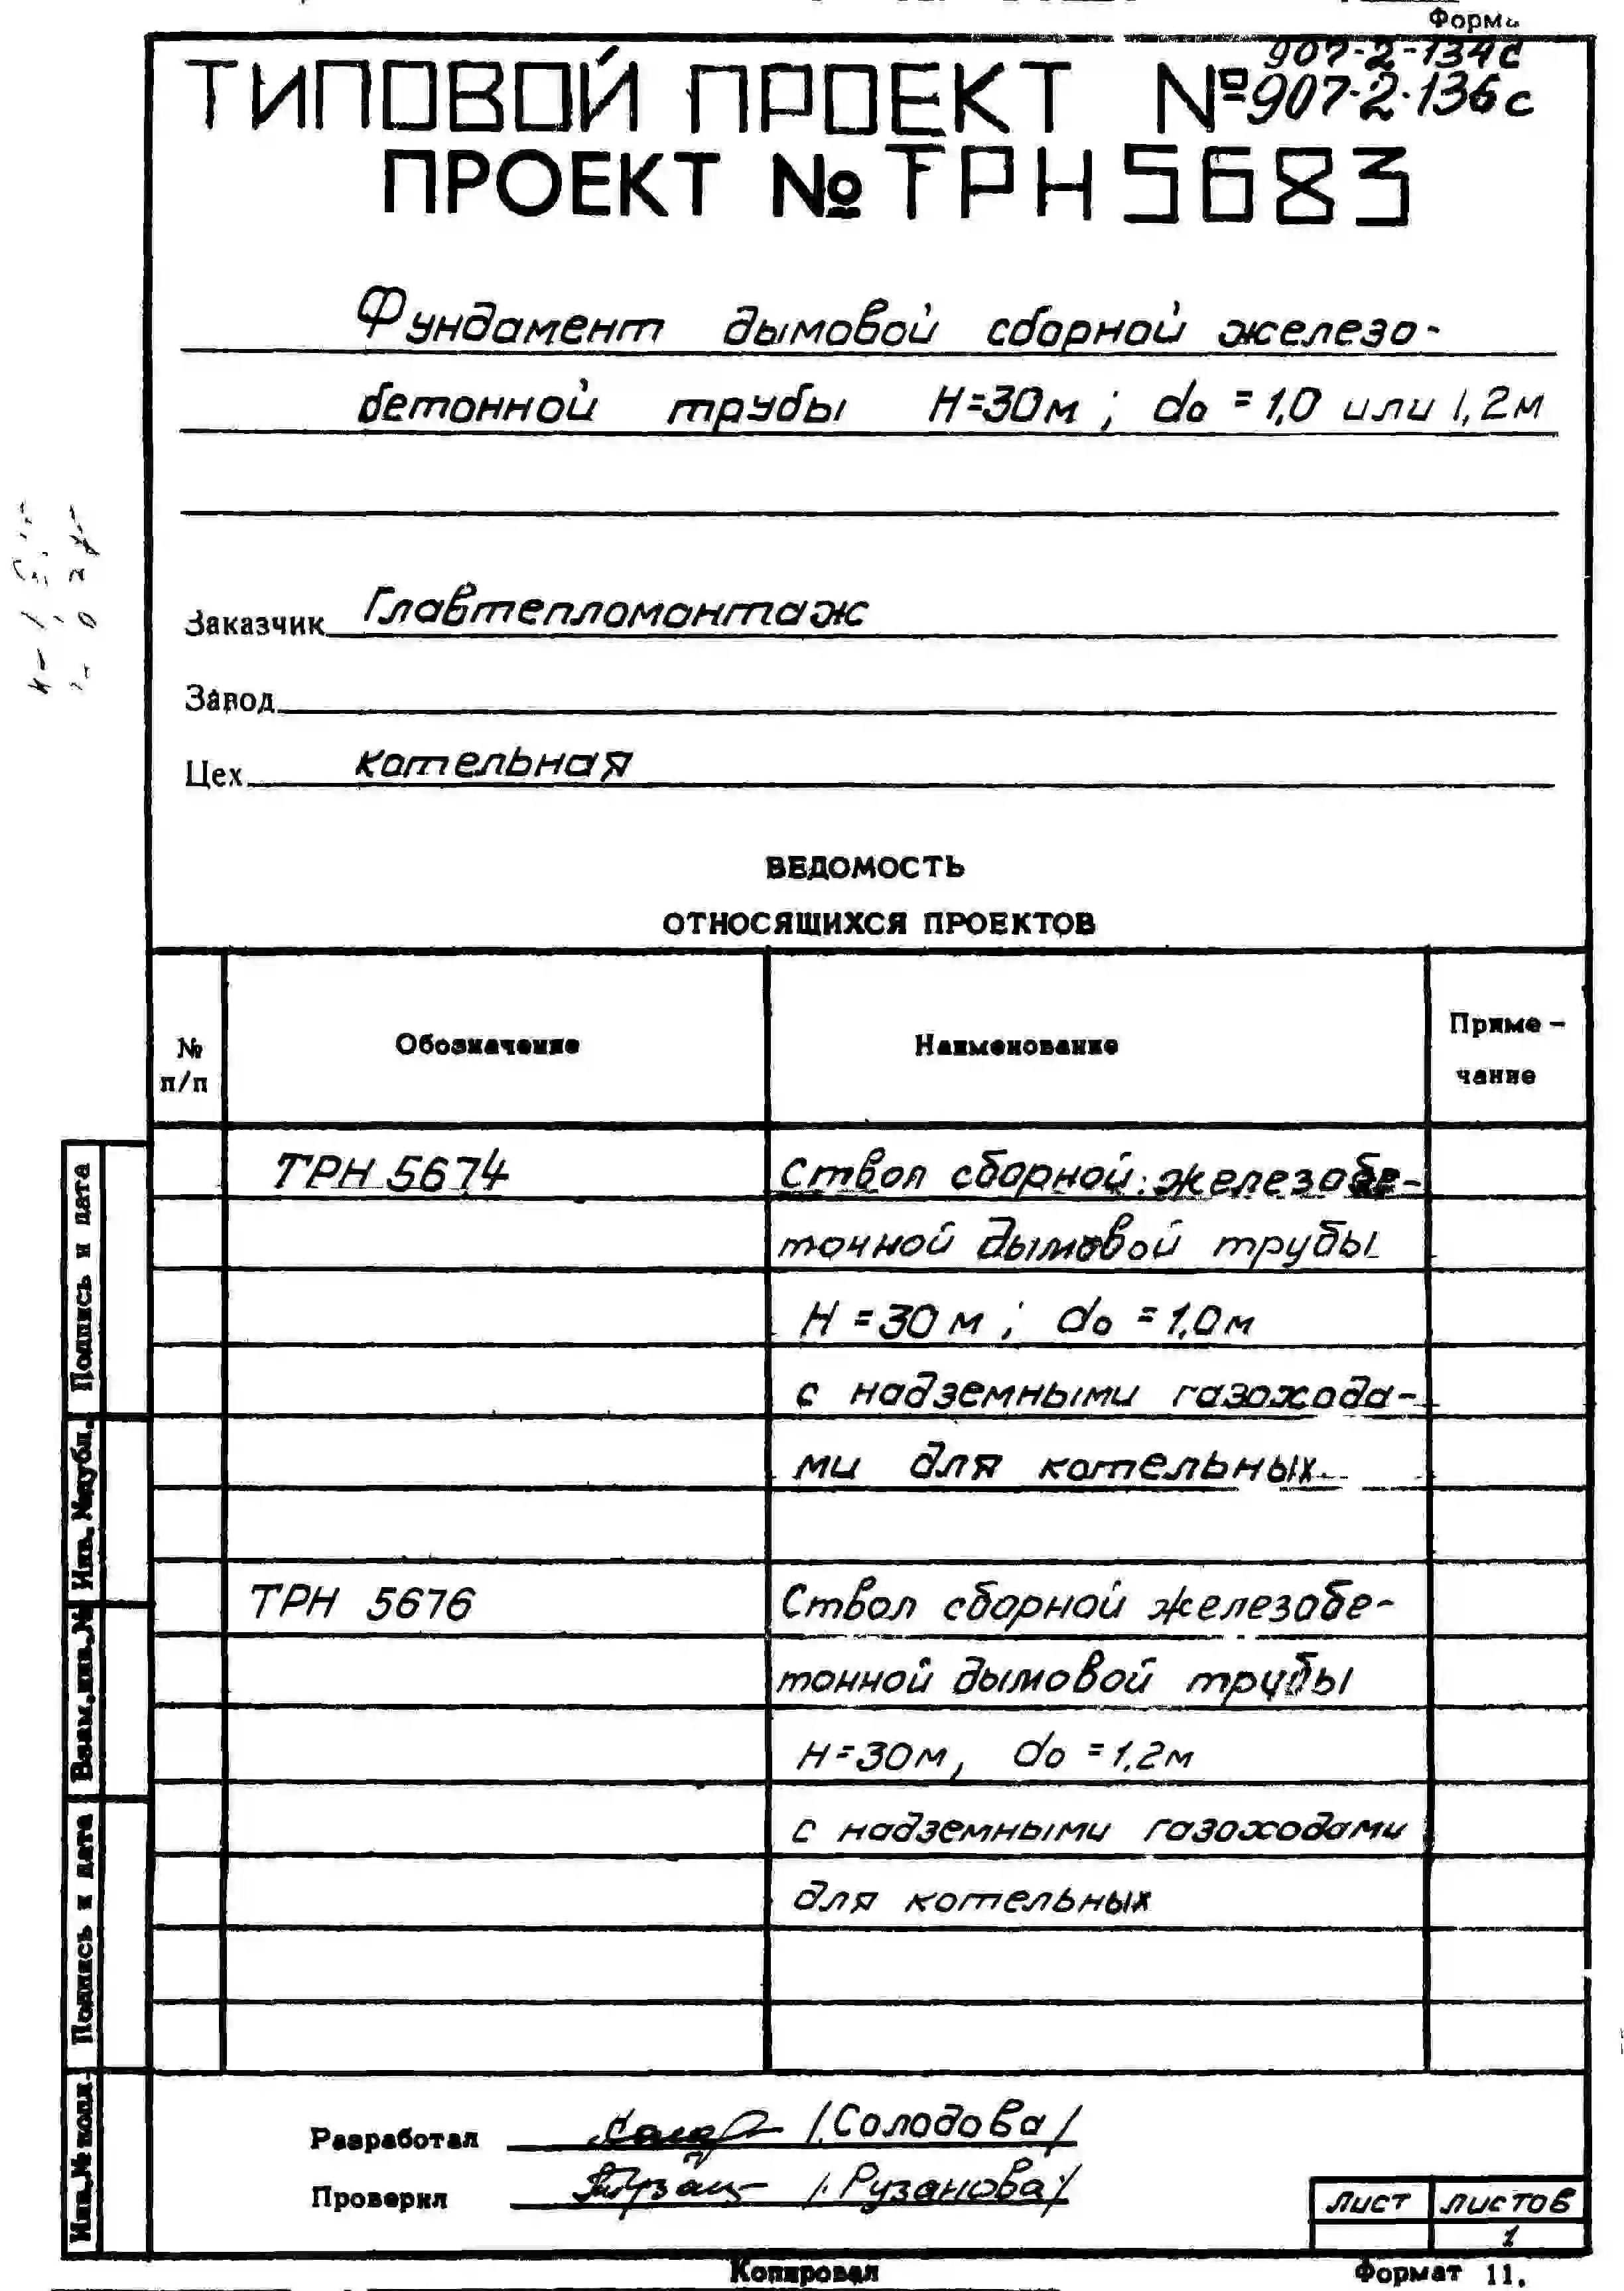 Форма
907-2-134с
ТИПОВОЙ ПРОЕКТ №907-2-136с
ПРОЕКТ № ТРН5683
Фундамент дымовой сборной железо-
бетонной трубы Н=30м; do = 1,0 или 1,2м
Заказчик Главтепломонтаж
Завод
Цех котельная
ВЕДОМОСТЬ
ОТНОСЯЩИХСЯ ПРОЕКТОВ
№ п/п
Обозначение
Наименование
Приме-
чание
ТРН 5674 Ствол сборной железобе-
тонной дымовой трубы
Н = 30 м; do = 1,0м
с надземными газохода-
ми для котельных
ТРН 5676 Ствол сборной железобе-
тонной дымовой трубы
Н=30м, do = 1,2м
с надземными газоходами
для котельных
Подпись и дата
Инв.№дубл.
Взам.инв.№
Подпись и дата
Инв.№ подл.
Разработал /Солодова/
Проверил /Рузанова/
лист листов
1
Копировал Формат 11.